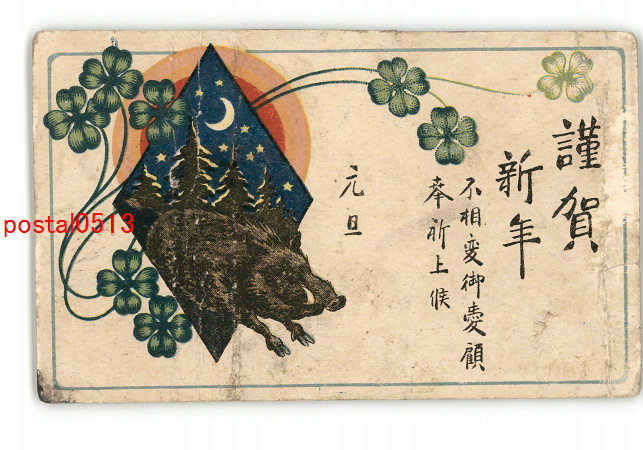 謹賀
新年
不相変御愛顧
奉祈上候
元旦
postal0513